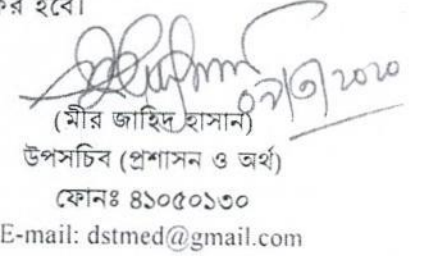 হবে।
(মীর জাহিদ হাসান)
উপসচিব (প্রশাসন ও অর্থ)
ফোনঃ ৪১০৫০১৩০
E-mail: dstmed@gmail.com